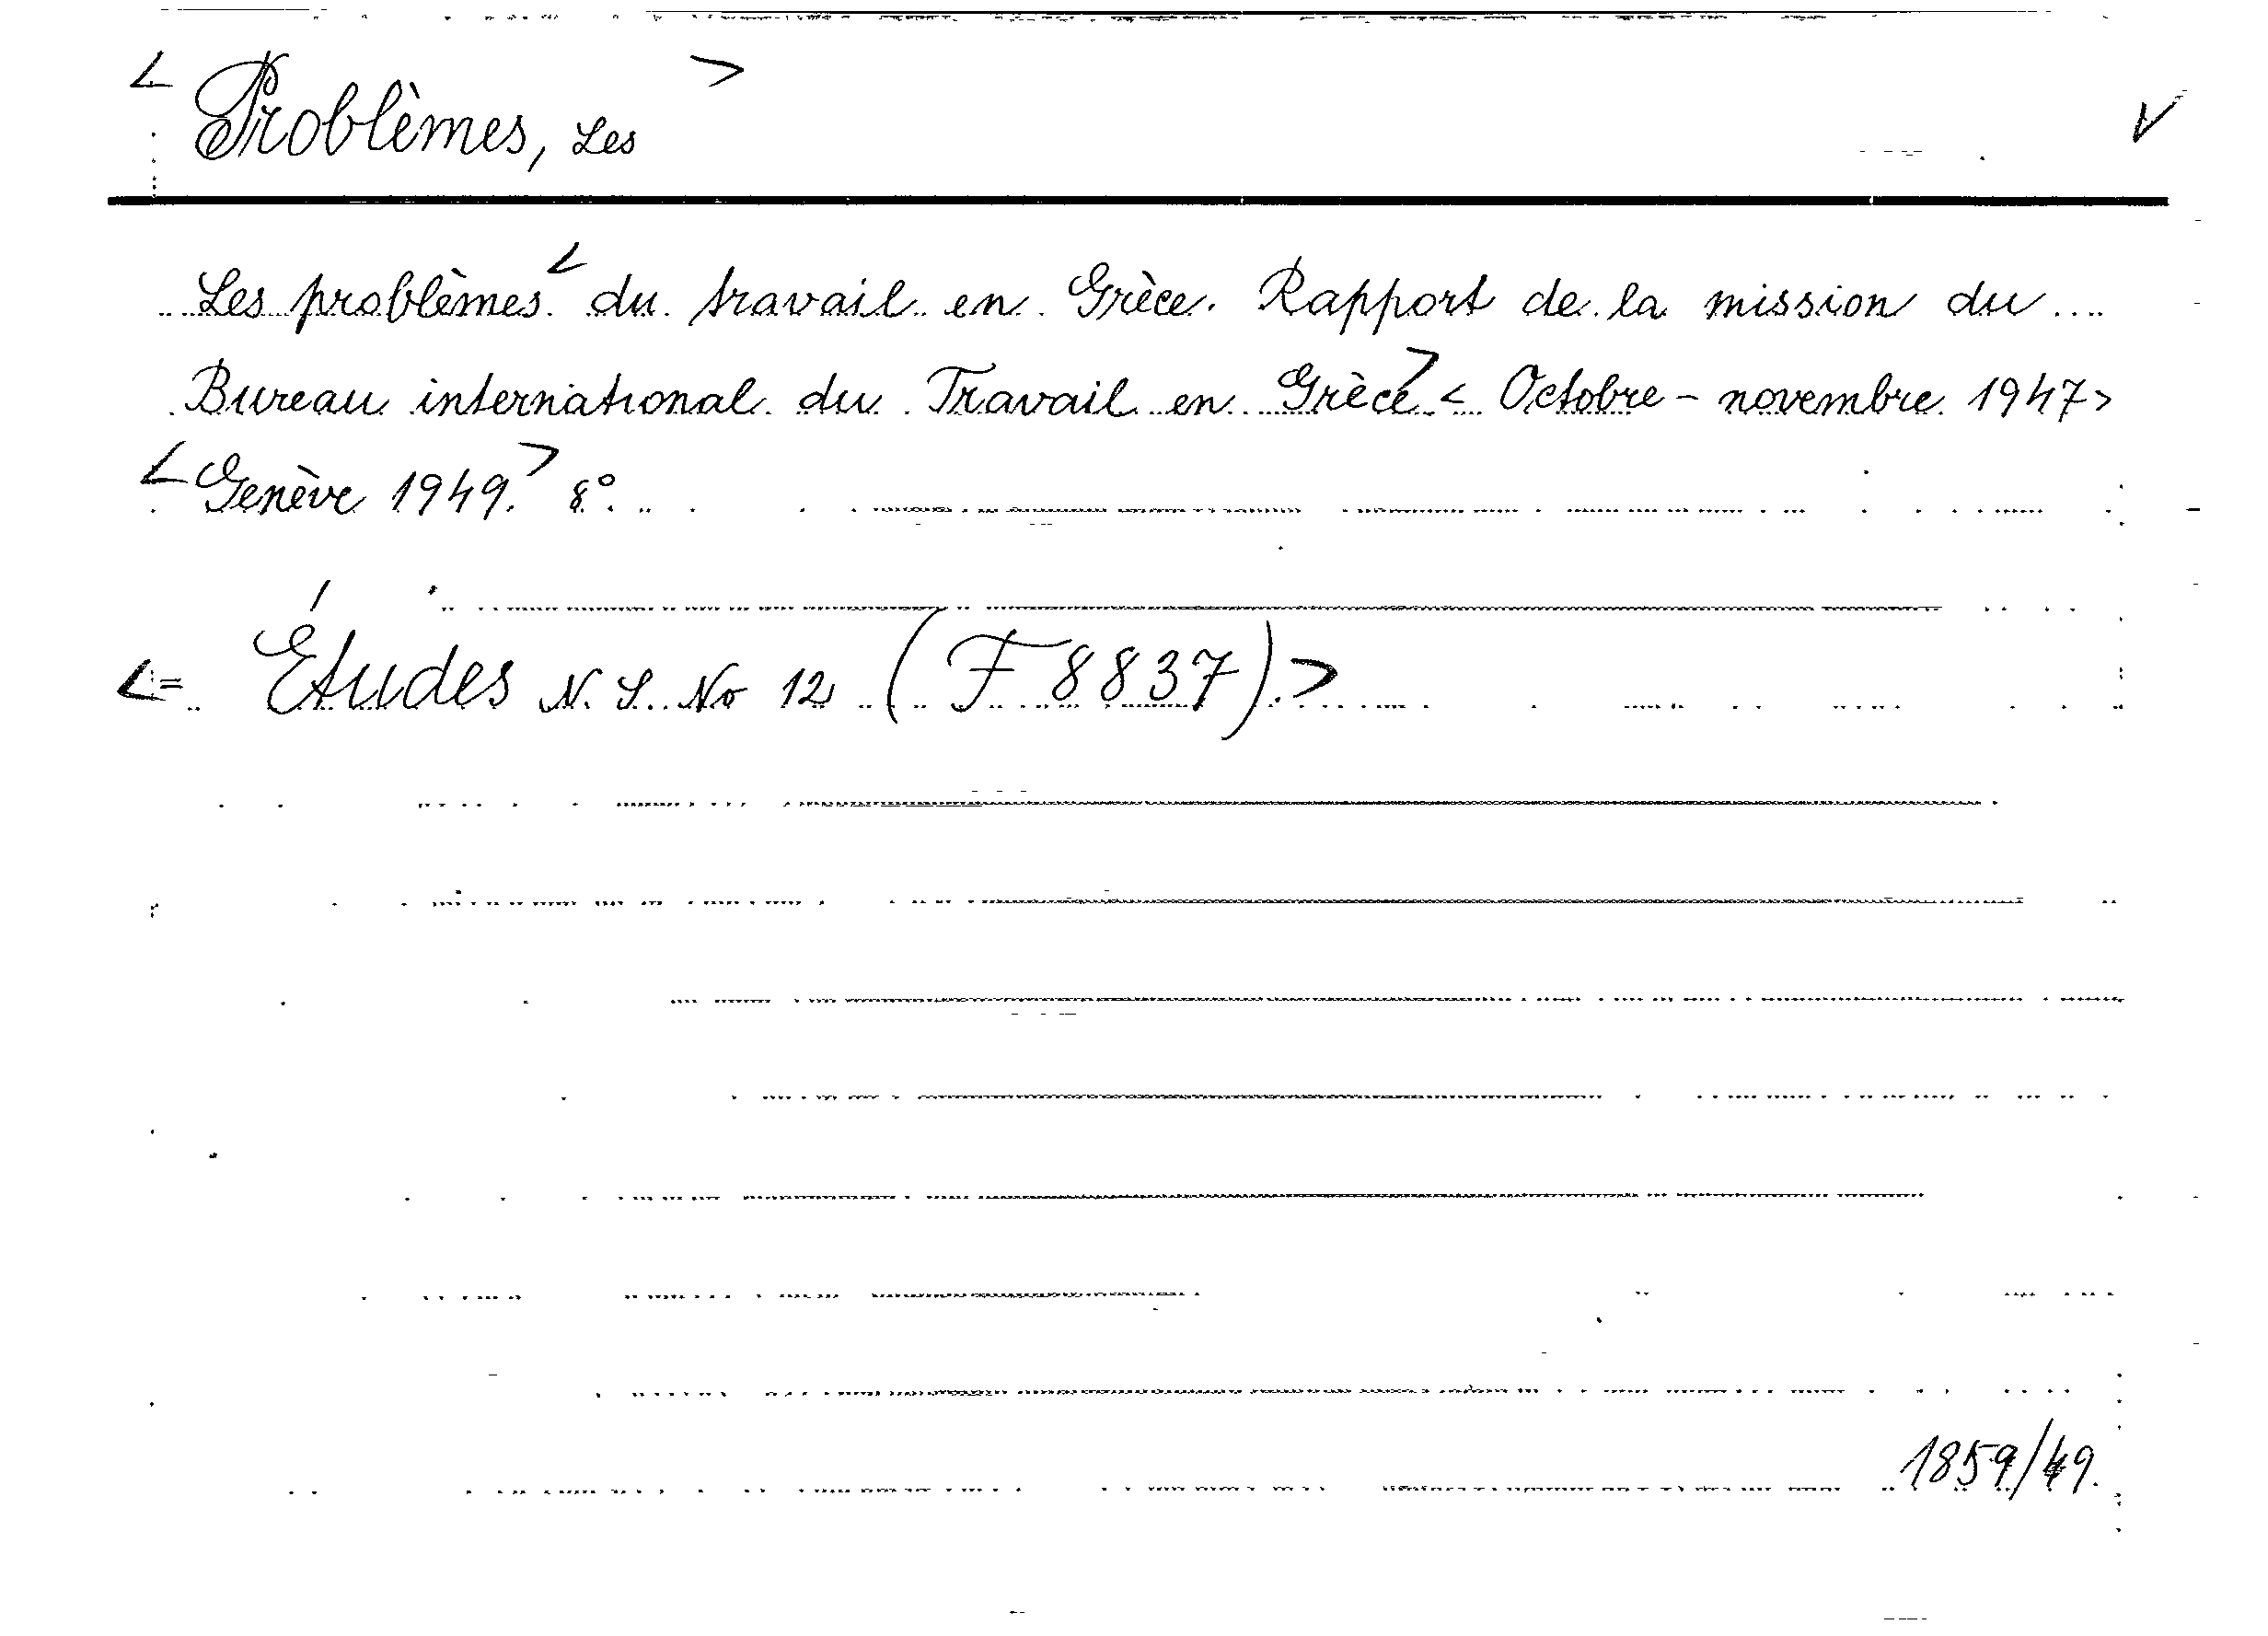 < Problèmes, Les > V
Les problèmes < du travail en Grèce. Rapport de la mission du
Bureau international du Travail en Grèce > < Octobre - novembre 1947 >
< Genève 1949. > 8°.
<= Études N. S. No 12 (F 8837). >
1859/49.